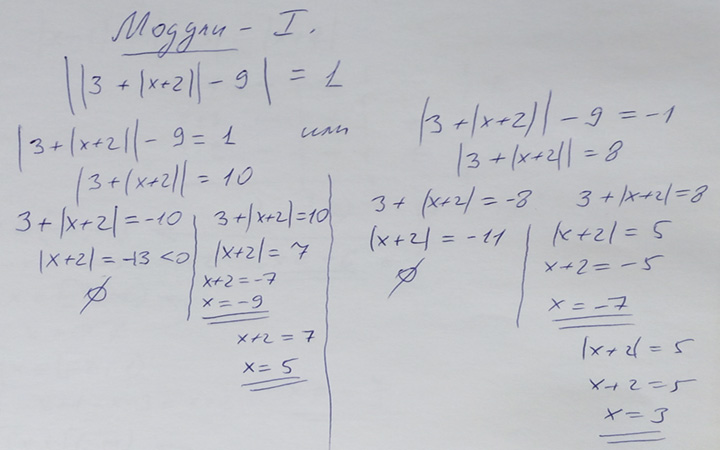 Модули - I.
||3 + |x+2|| - 9| = 1
|3+|x+2|| - 9 = 1 или |3+|x+2|| - 9 = -1
|3+|x+2|| = 10
|3+|x+2|| = 8
3+|x+2| = -10
|x+2| = -13 <0
∅
3+|x+2| = 10
|x+2| = 7
x+2 = -7
x = -9
x+2 = 7
x = 5
3+ |x+2| = -8
|x+2| = -11
∅
3+|x+2| = 8
|x+2| = 5
x+2 = -5
x = -7
|x+2| = 5
x+2 = 5
x = 3